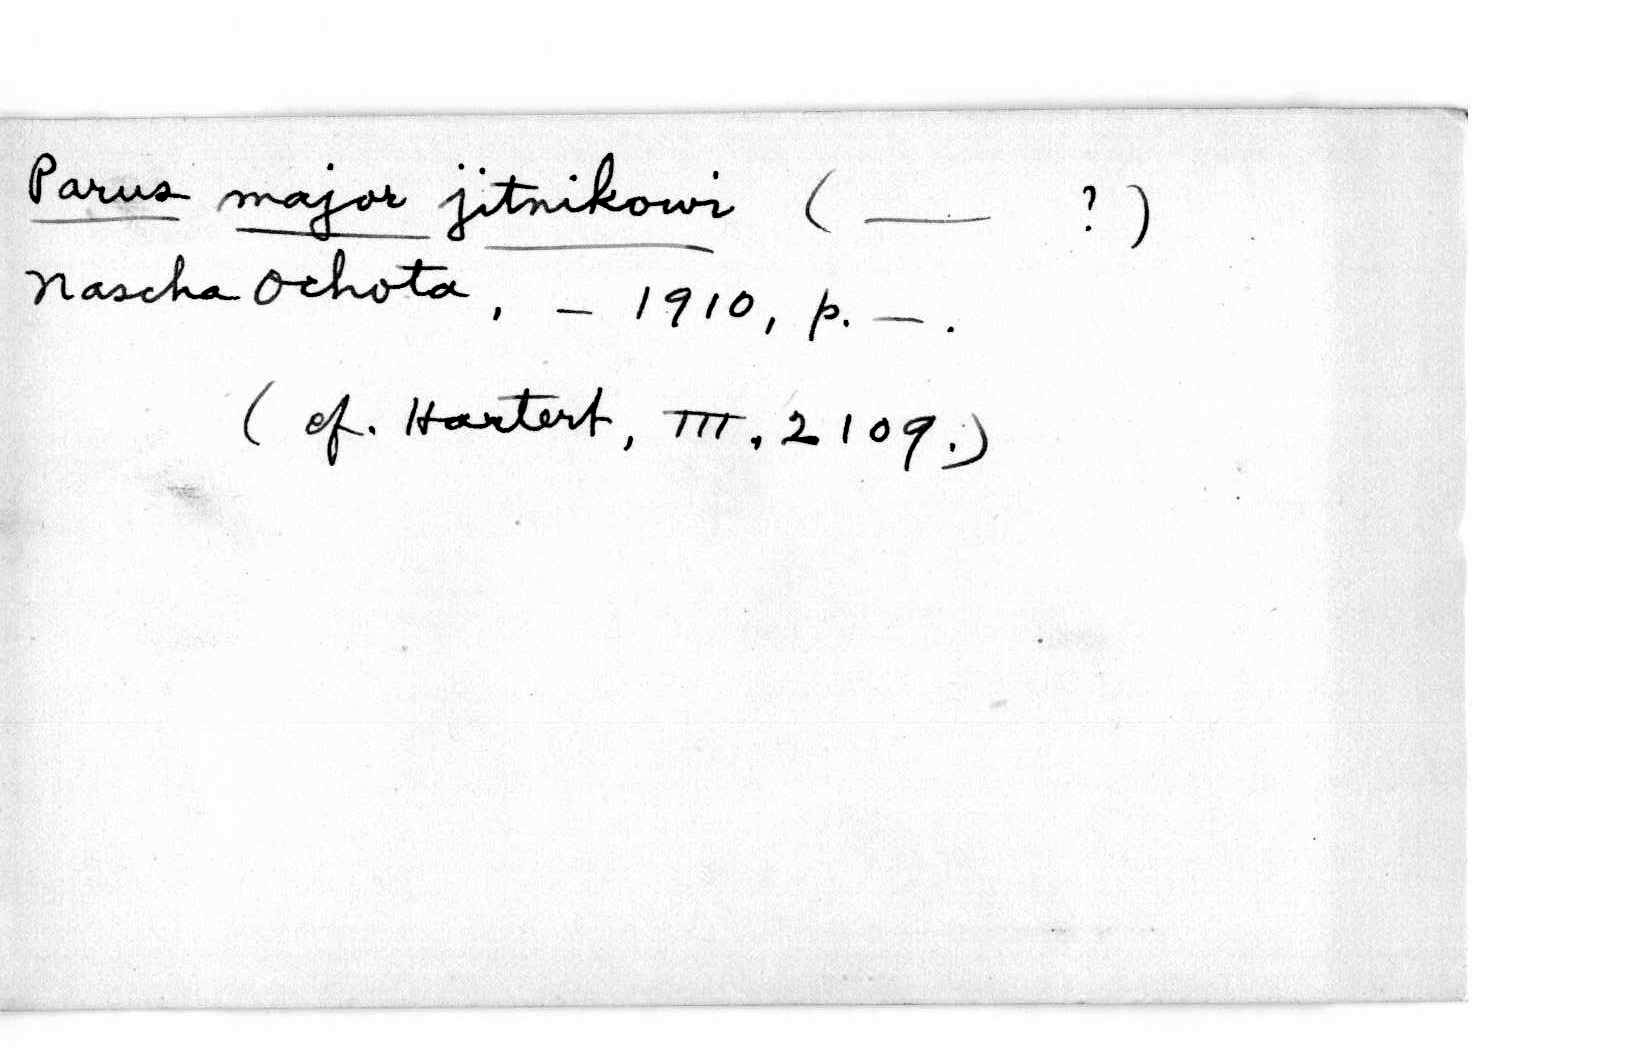 Parus major jitnikowi ( — ?)
Nascha Ochota, – 1910, p. – .
( cf. Hartert, III, 2109.)